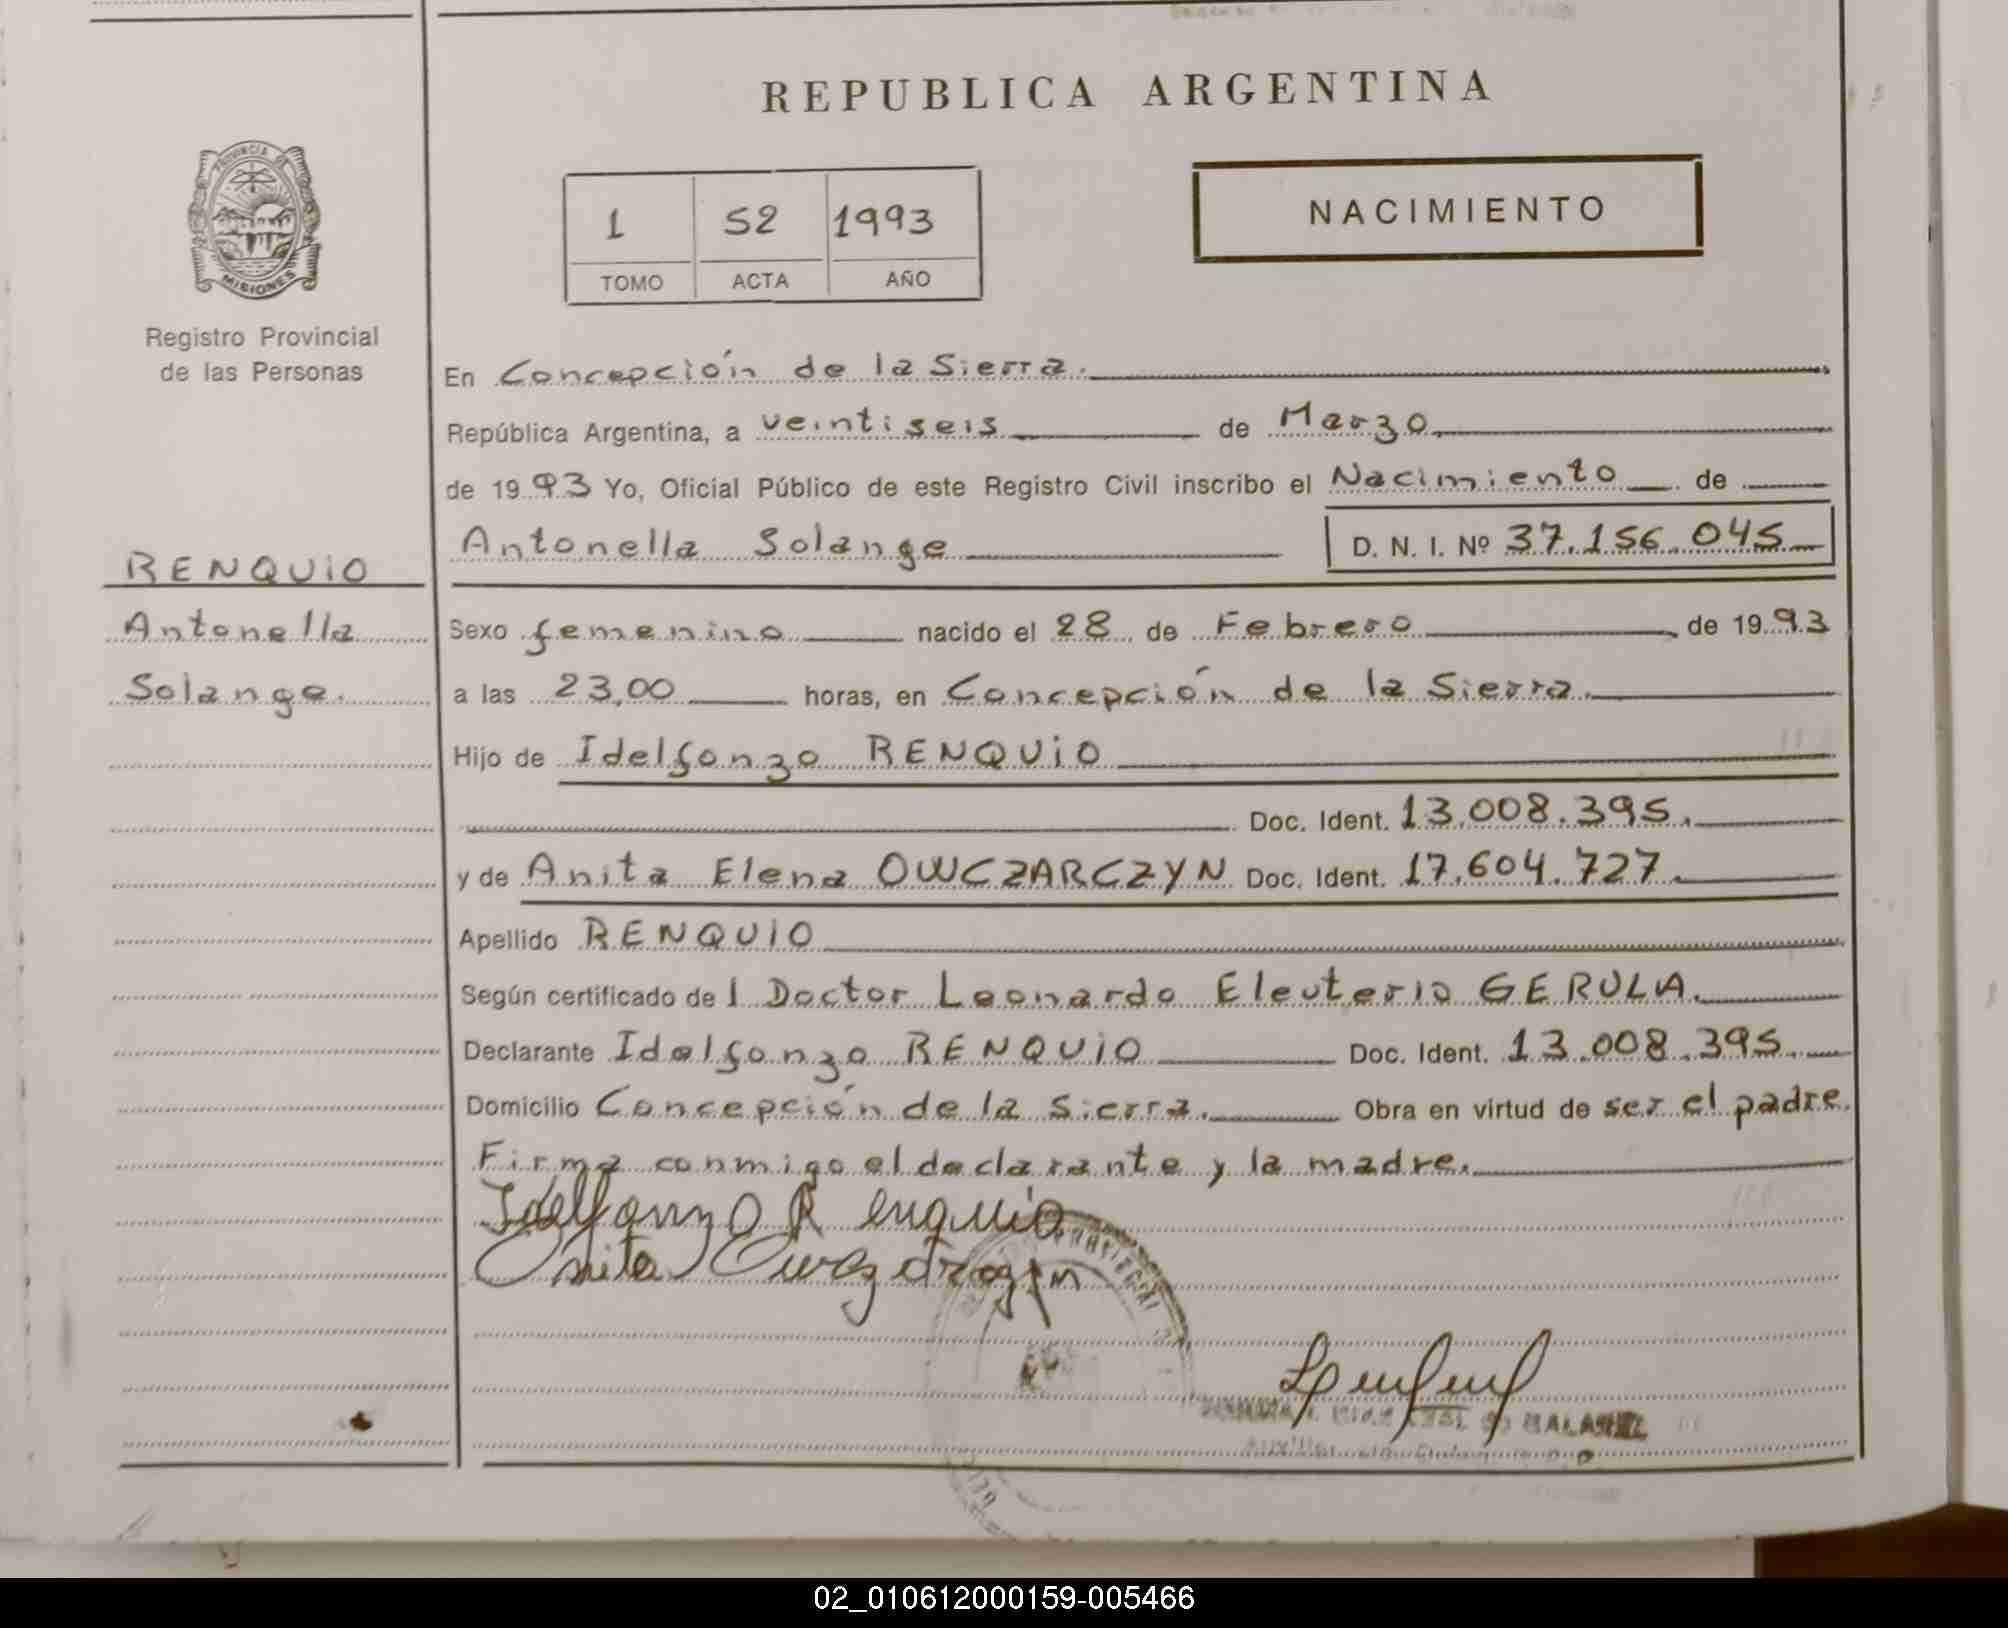 REPUBLICA ARGENTINA
PROVINCIA DE
MISIONES
Registro Provincial
de las Personas
1 52 1993
TOMO ACTA AÑO
NACIMIENTO
En Concepción de la Sierra.
República Argentina, a veintiseis de Marzo
de 1993 Yo, Oficial Público de este Registro Civil inscribo el Nacimiento de
Antonella Solange D. N. I. Nº 37.156.045
RENQUiO
Antonella
Solange.
Sexo femenino nacido el 28 de Febrero de 1993
a las 23,00 horas, en Concepción de la Sierra.
Hijo de Idelfonzo RENQUiO
Doc. Ident. 13.008.395.
y de Anita Elena OWCZARCZYN Doc. Ident. 17.604.727.
Apellido RENQUIO
Según certificado del Doctor Leonardo Eleuterio GERULA.
Declarante Idelfonzo RENQUiO Doc. Ident. 13.008.395
Domicilio Concepción de la Sierra. Obra en virtud de ser el padre.
Firma conmigo el declarante y la madre.
Idelfonzo Renquio
Anita
02_010612000159-005466